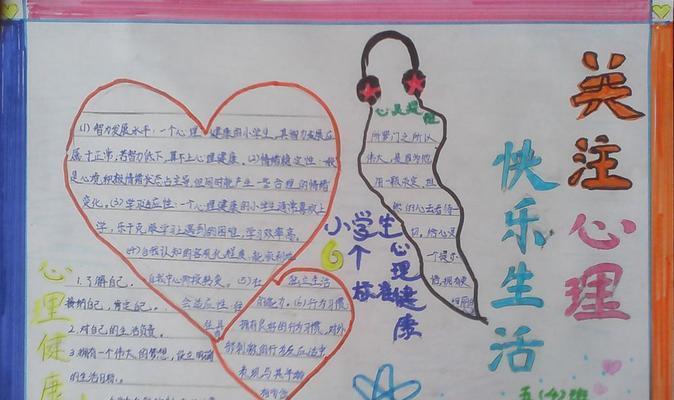 关注心理
快乐生活
五(4)班
小学生
6个
心理健康
标准
(1)智力发展水平,一个心理健康的小学生,其智力发展应
属于正常,若智力低下,算不上心理健康。(2)情绪稳定性一般
是心境积极情绪状态占主导,但同时能产生一些合理的情绪
变化。(3)学习适应性:一个心理健康的小学生通常喜欢上
学,乐于克服学习上遇到的困难,学习效率高。
(4)自我认知的客观化程度,能做到
自我中心
(5)社
会适应性
独立生活
的能力。(6)行为习惯
拥有良好的行为习惯,对外
部刺激的行为反应适中,
表现与其年龄
所罗门之所以
伟大,是因为他
心理健康
1.了解自己,
接纳自己,肯定自己。
2.对自己的生活负责。
3.拥有一个伟大的梦想,设立明确
的生活目标。